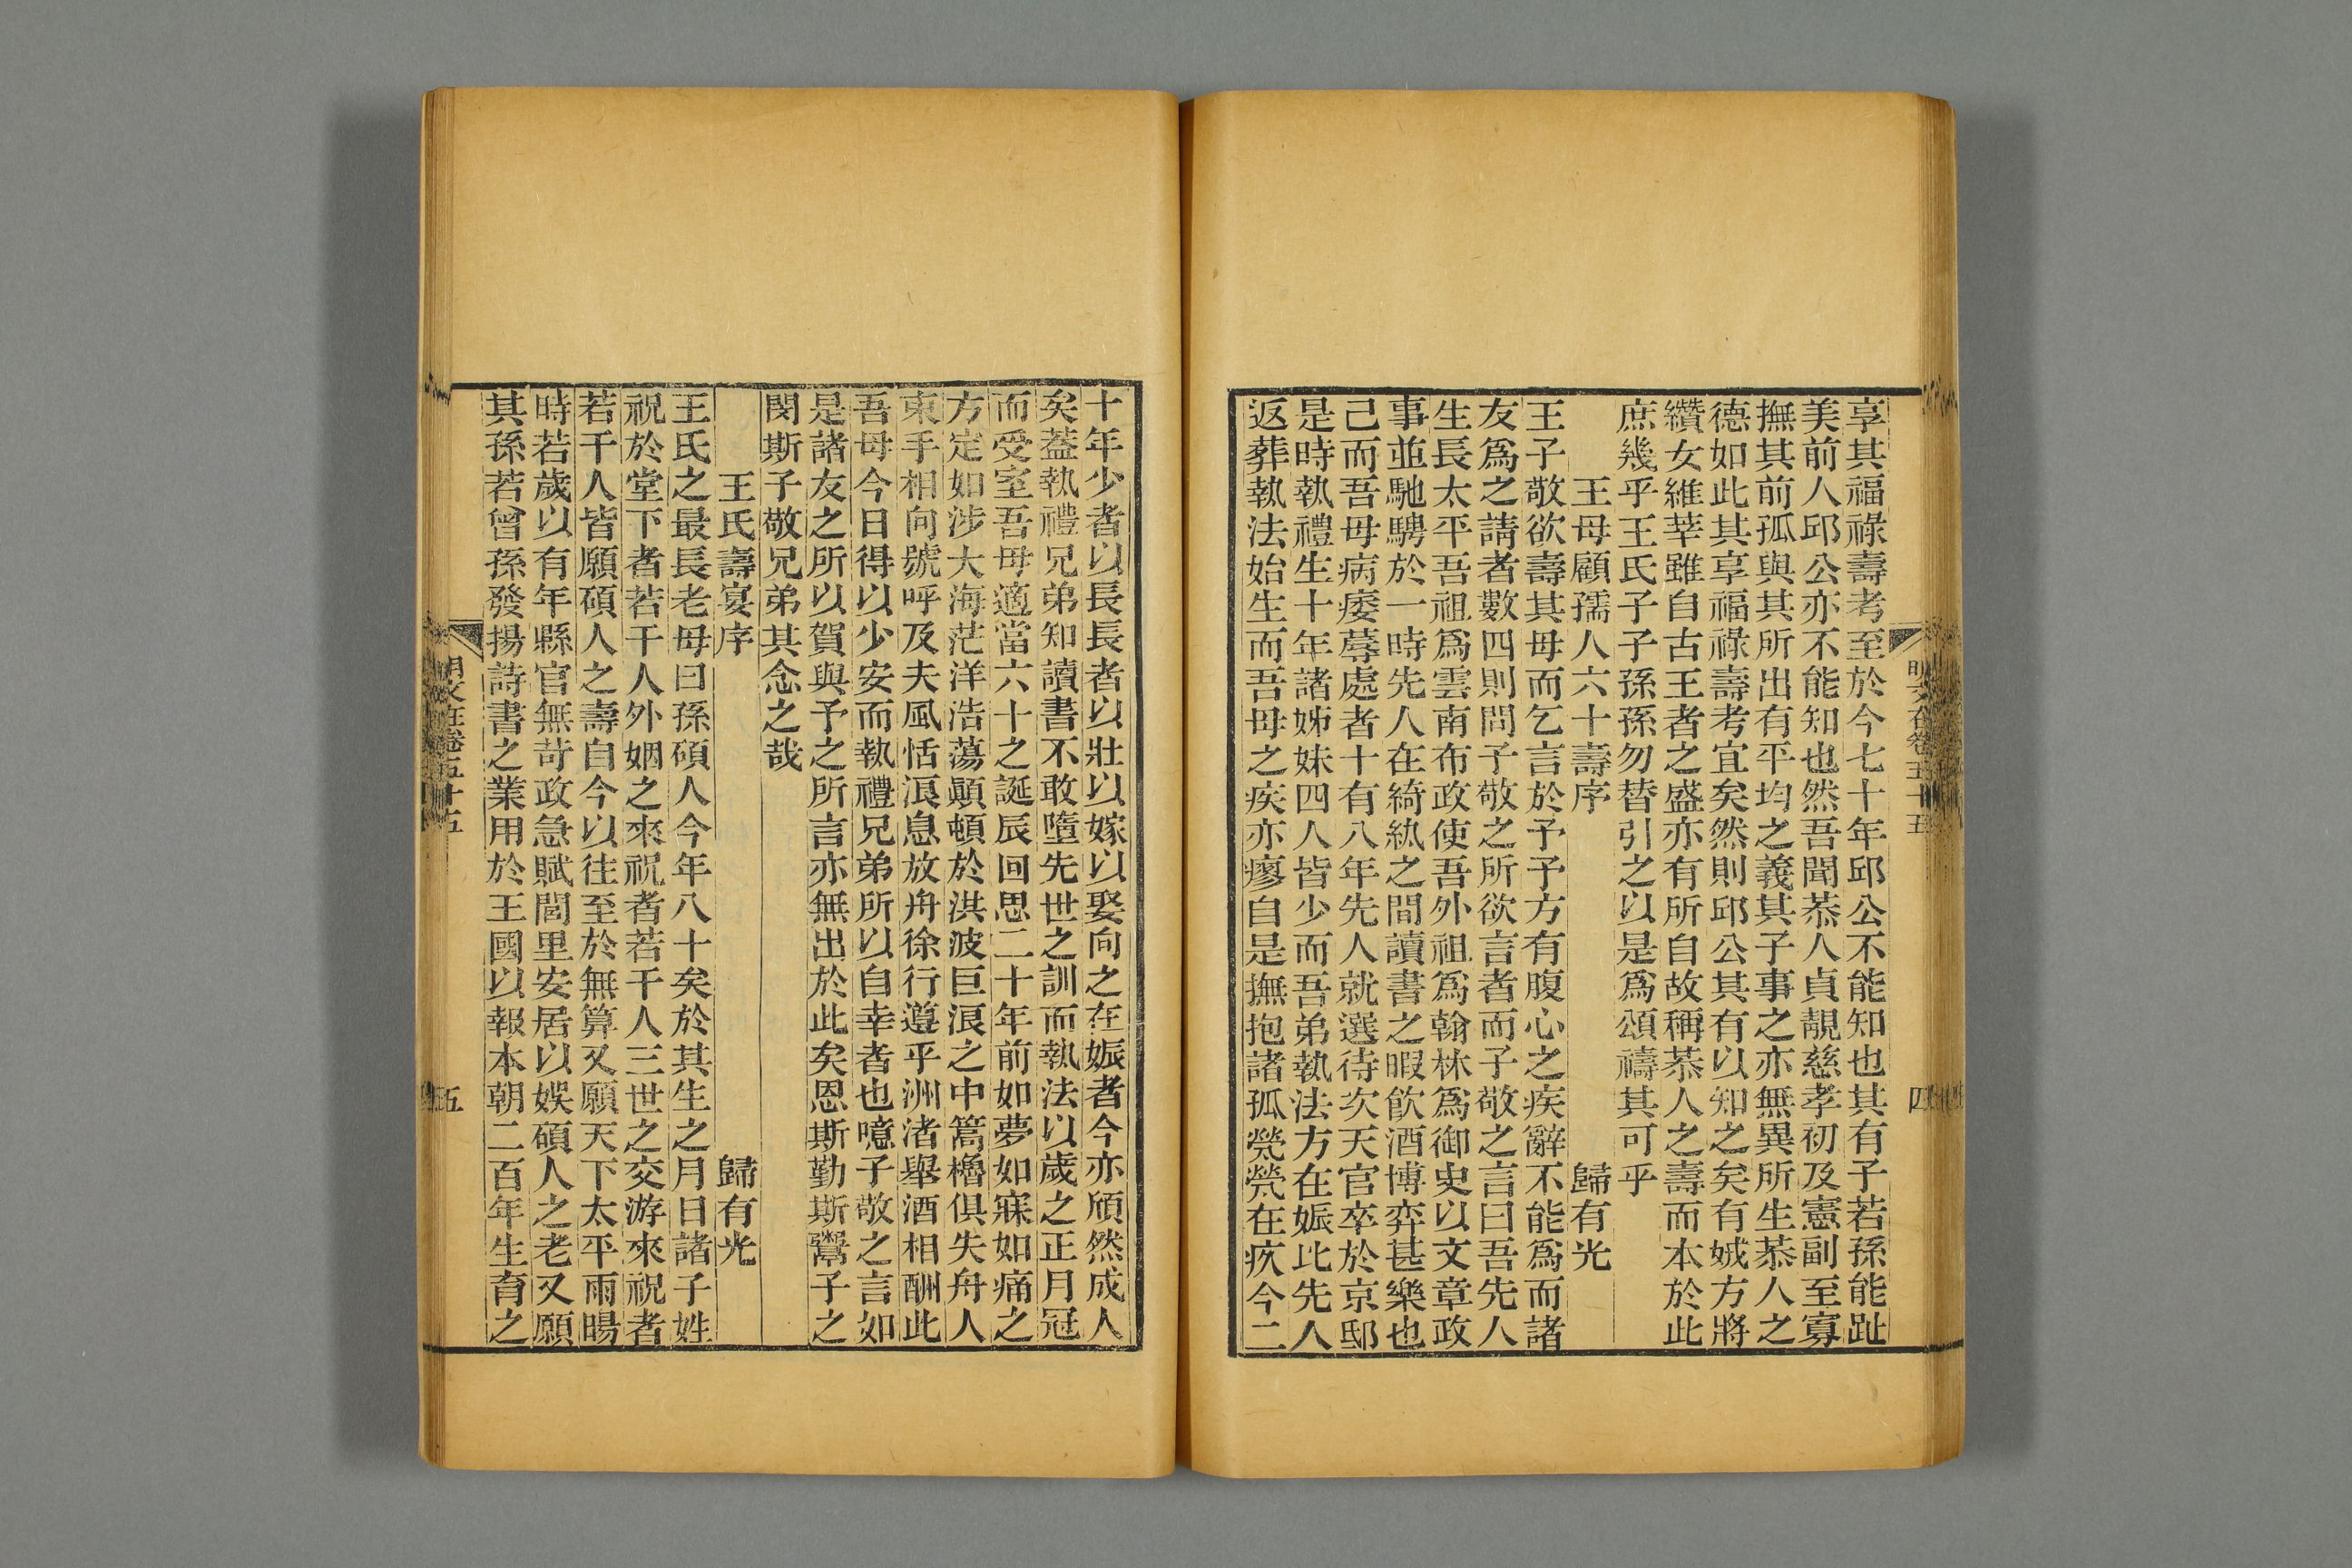 享其福祿壽考至於今七十年邱公不能知也其有子若孫能趾
美前人邱公亦不能知也然吾聞恭人貞靚慈孝初及憲副至寡
撫其前孤與其所出有平均之義其子事之亦無異所生恭人之
德如此其享福祿壽考宜矣然則邱公其有以知之矣有娀方將
纘女維莘雖自古王者之盛亦有所自故稱恭人之壽而本於此
庶幾乎王氏子子孫孫勿替引之以是爲頌禱其可乎
王母顧孺人六十壽序 歸有光
王子敬欲壽其母而乞言於予予方有腹心之疾辭不能爲而諸
友爲之請者數四則問子敬之所欲言者而子敬之言曰吾先人
生長太平吾祖爲雲南布政使吾外祖爲翰林爲御史以文章政
事並馳騁於一時先人在綺紈之間讀書之暇飮酒博弈甚樂也
己而吾母病痿蓐處者十有八年先人就選待次天官卒於京邸
是時執禮生十年諸姊妹四人皆少而吾弟執法方在娠比先人
返葬執法始生而吾母之疾亦瘳自是撫抱諸孤煢煢在疚今二
明文在卷五十五 四
十年少者以長長者以壯以嫁以娶向之在娠者今亦頎然成人
矣蓋執禮兄弟知讀書不敢墮先世之訓而執法以歲之正月冠
而受室吾母適當六十之誕辰回思二十年前如夢如寐如痛之
方定如涉大海茫洋浩蕩顚頓於洪波巨浪之中篙櫓俱失舟人
束手相向號呼及夫風恬浪息放舟徐行遵乎洲渚舉酒相酬此
吾母今日得以少安而執禮兄弟所以自幸者也噫子敬之言如
是諸友之所以賀與予之所言亦無出於此矣恩斯勤斯鬻子之
閔斯子敬兄弟其念之哉
王氏壽宴序 歸有光
王氏之最長老母曰孫碩人今年八十矣於其生之月日諸子姓
祝於堂下者若干人外姻之來祝者若干人三世之交游來祝者
若干人皆願碩人之壽自今以往至於無算又願天下太平雨暘
時若歲以有年縣官無苛政急賦閭里安居以娛碩人之老又願
其孫若曾孫發揚詩書之業用於王國以報本朝二百年生育之
明文在卷五十五 五